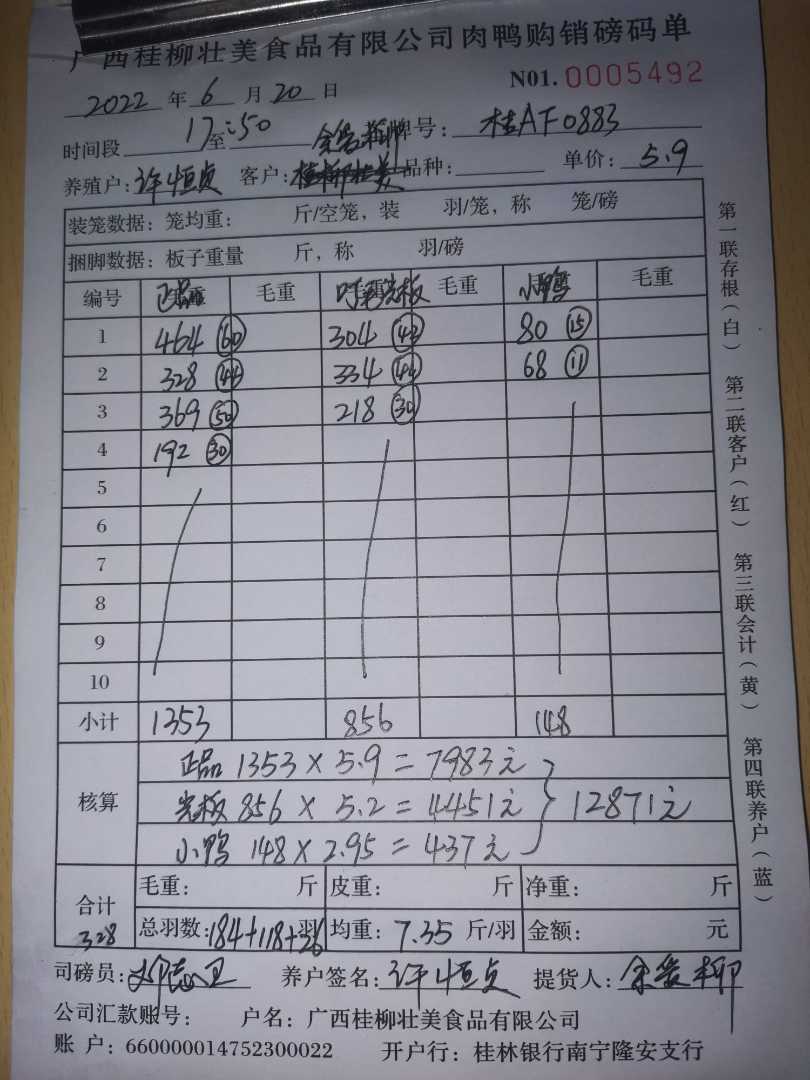 广西桂柳壮美食品有限公司肉鸭购销磅码单
N01. 0005492
2022 年 6 月 20 日
时间段 17 至 :50 牌号: 桂AF0883
养殖户: 许恒贞 客户: 桂柳壮美 品种: 单价: 5.9
装笼数据: 笼均重: 斤/空笼, 装 羽/笼, 称 笼/磅
捆脚数据: 板子重量 斤, 称 羽/磅
编号 正品 毛重 光板 毛重 小鸭 毛重
1 464 (60) 304 (42) 80 (15)
2 328 (44) 334 (44) 68 (11)
3 369 (50) 218 (30)
4 192 (30)
5
6
7
8
9
10
小计 1353 856 148
核算
正品 1353 × 5.9 = 7983元
光板 856 × 5.2 = 4451元 } 12871元
小鸭 148 × 2.95 = 437元
合计 328
毛重: 斤 皮重: 斤 净重: 斤
总羽数: 184+118+26 羽 均重: 7.35 斤/羽 金额: 元
司磅员: 养户签名: 许恒贞 提货人:
公司汇款账号: 户名: 广西桂柳壮美食品有限公司
账 户: 660000014752300022 开户行: 桂林银行南宁隆安支行
第一联存根(白) 第二联客户(红) 第三联会计(黄) 第四联养户(蓝)